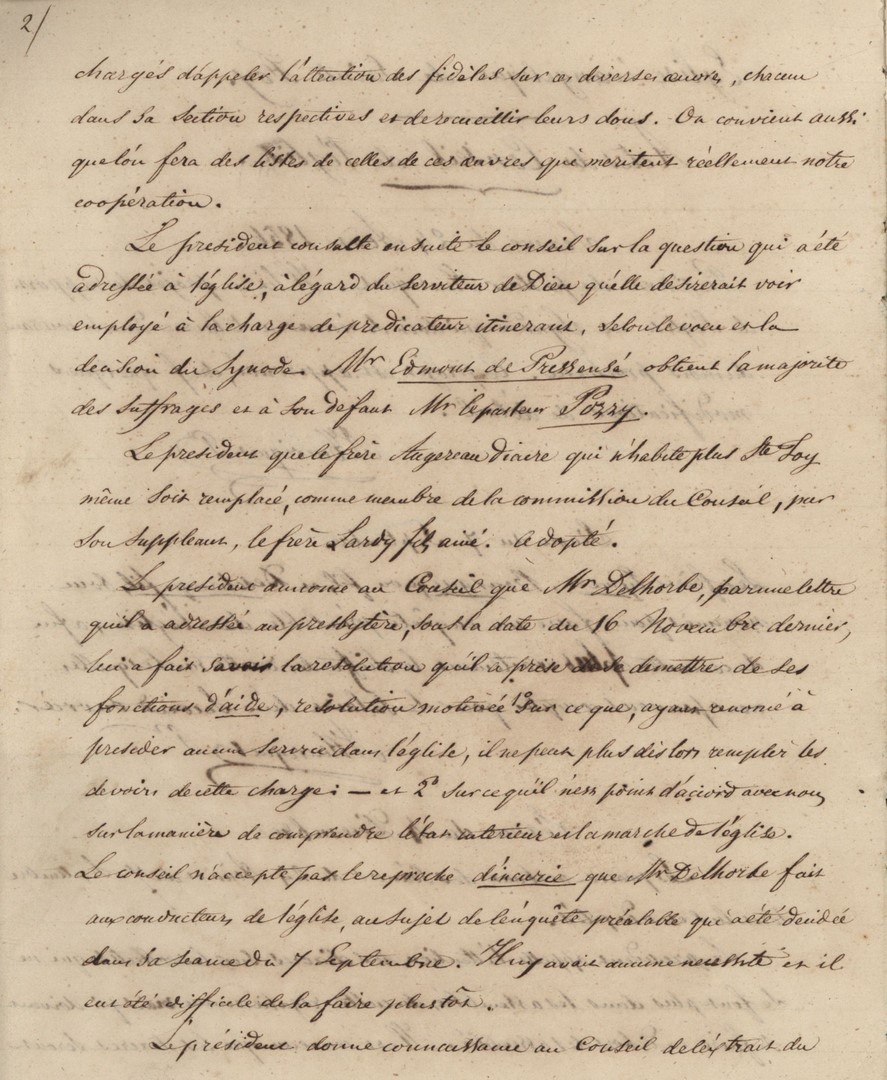 2/
chargés d'appeler l'attention des fidèles sur ces diverses œuvres, chacun
dans sa section respectives et de recueillir leurs dons. On convient aussi
que l'on fera des listes de celles de ces œuvres qui meritent réellement notre
coopération.
Le president consulte ensuite le conseil sur la question qui a été
adressée à l'église, à l'égard du serviteur de Dieu qu'elle desirerait voir
employé à la charge de predicateur itinerant, selon le voeu et la
decision du Synode. Mr Edmont de Pressensé obtient la majorite
des suffrages et à son defaut Mr le pasteur Pozzy.
Le president que le frère Augereau diacre qui n'habite plus Ste Foy
même soit remplacé, comme membre de la commission du Conseil, par
son suppleant, le frère Lardy fils ainé. Adopté.
Le president annonce au Conseil que Mr Delhorbe, par une lettre
qu'il a adressée au presbytère, sous la date du 16 Novembre dernier,
lui a fait savoir la resolution qu'il a prise de se demettre de ses
fonctions d'aide, resolution motivée 1o sur ce que, ayant renoncé à
presider aucun service dans l'église, il ne peut plus dès lors remplir les
devoirs de cette charge: — et 2o sur ce qu'il n'est point d'accord avec nous
sur la manière de comprendre l'état interieur et la marche de l'église.
Le conseil n'accepte pas le reproche d'incurie que Mr Delhorbe fait
aux conducteurs de l'église, au sujet de l'enquête préalable qui a été decidée
dans sa seance du 7 Septembre. Il n'y avait aucune necessité et il
eut été difficile de la faire plus tôt.
Le président donne connaissance au Conseil de l'extrait du